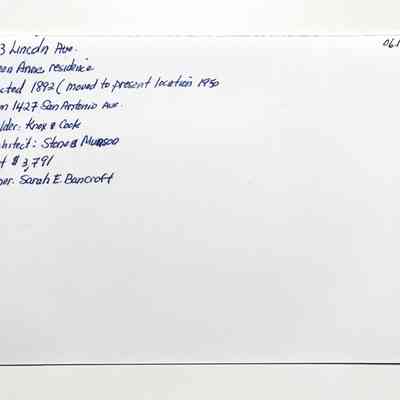 3 Lincoln Ave.
06.1
een Anne residence
cted 1892 (moved to present location 1950
m 1427 San Antonio Ave.
lder: Knox & Cook
hitect: Stone & Munson
t $3,791
ner. Sarah E. Bancroft